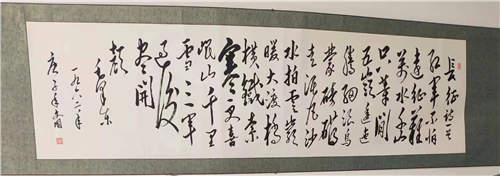 長征詩一首
紅軍不怕
遠征難
萬水千山
只等閒
五嶺逶迤
騰細浪烏
蒙磅礴
走泥丸金沙
水拍雲崖
暖大渡橋
橫鐵索
寒更喜
岷山千里
雪三軍
過後
盡開
顏
毛澤東
一九六二年
庚子年